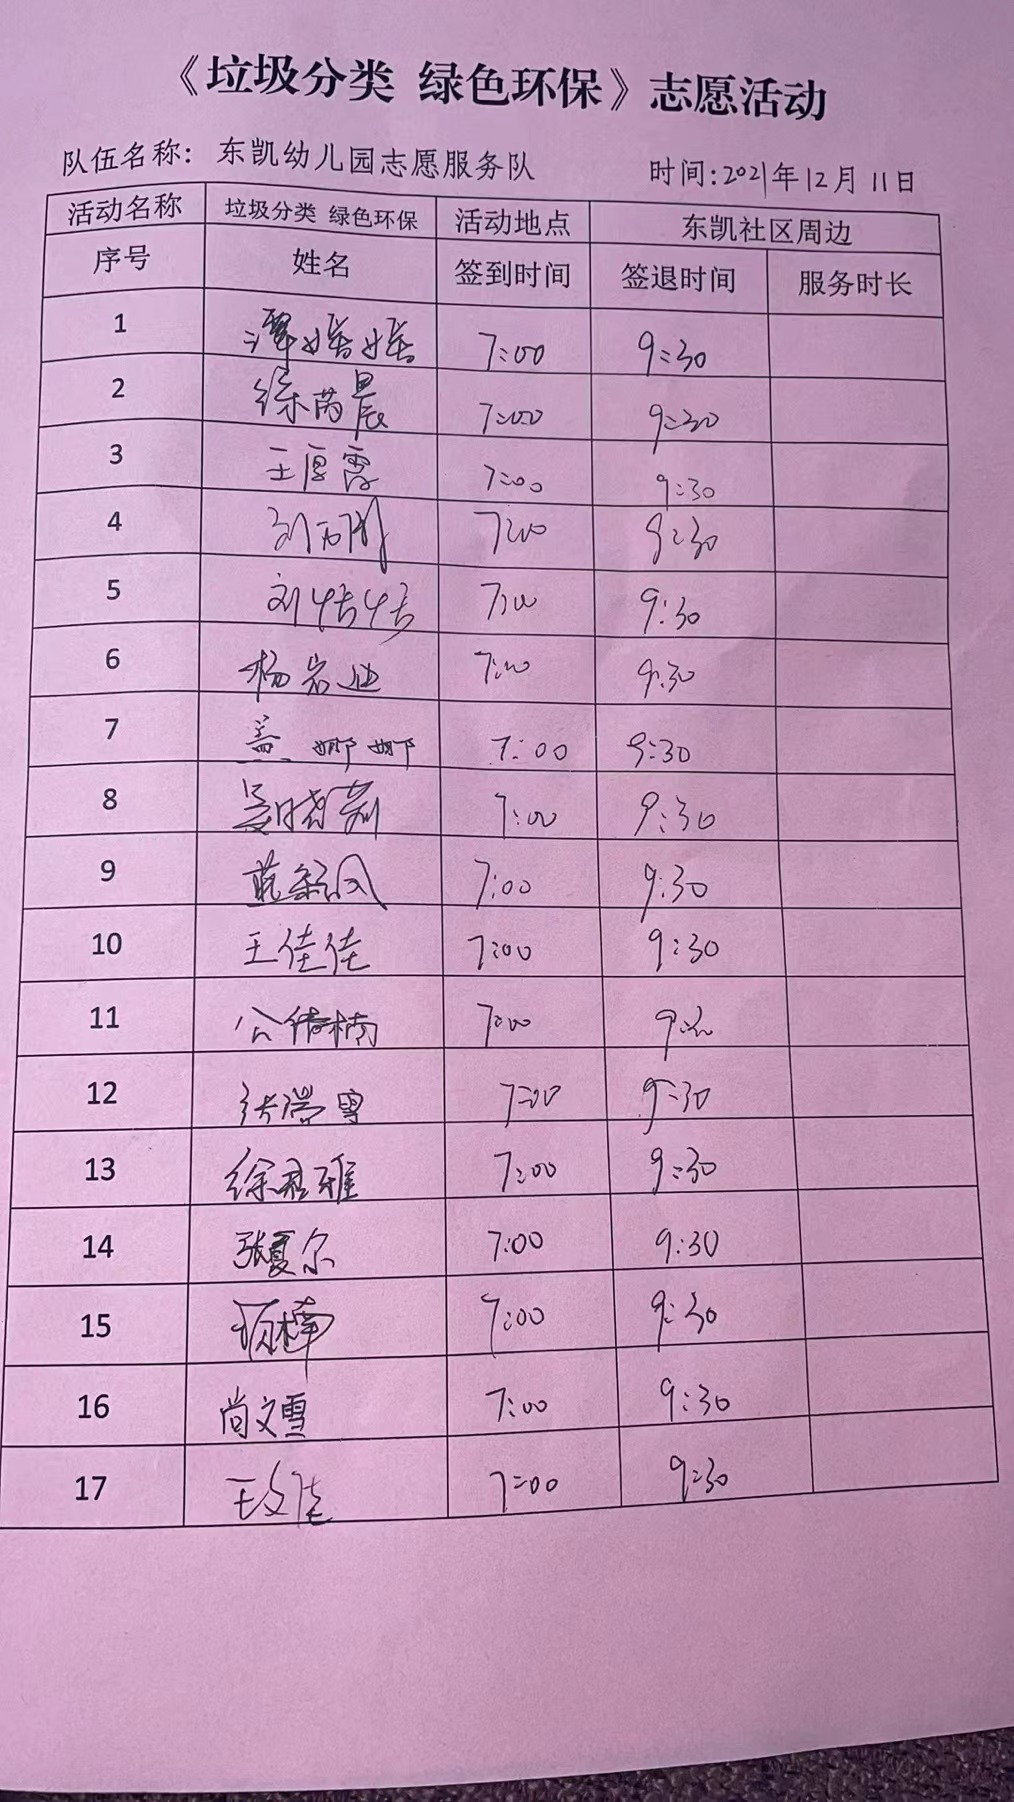 《垃圾分类 绿色环保》志愿活动
队伍名称：东凯幼儿园志愿服务队 时间:2021年12月11日
活动名称 垃圾分类 绿色环保 活动地点 东凯社区周边
序号 姓名 签到时间 签退时间 服务时长
1 7:00 9:30
2 徐苒晨 7:00 9:30
3 王厚霞 7:00 9:30
4 7:00 9:30
5 刘恬恬 7:00 9:30
6 杨岩迪 7:00 9:30
7 盖娜娜 7:00 9:30
8 吴晓莉 7:00 9:30
9 7:00 9:30
10 王佳佳 7:00 9:30
11 公倩楠 7:00
12 张滢雪 7:00 9:30
13 徐君雅 7:00 9:30
14 张夏尔 7:00 9:30
15 7:00 9:30
16 尚文雪 7:00 9:30
17 王文佳 7:00 9:30